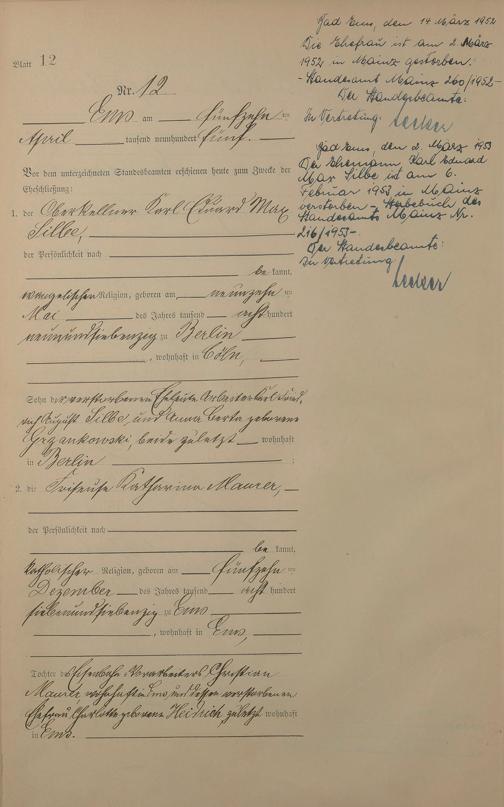 Blatt 12
Nr. 12
Ems am fünfzehnten
April tausend neunhundert fünf.
Vor dem unterzeichneten Standesbeamten erschienen heute zum Zwecke der
Eheschließung:
1. der Oberkellner Karl Eduard Max
Silbe,
der Persönlichkeit nach
be kannt,
evangelischer Religion, geboren am neunzehnten
Mai des Jahres tausend acht hundert
neunundsiebenzig zu Berlin
, wohnhaft in Cöln,
Sohn der verstorbenen Eheleute Arbeiter Karl
August Silbe, und Anna Berta geborene
Grzankowski, beide zuletzt wohnhaft
in Berlin ;
2. die Friseuse Katharina Maurer,
der Persönlichkeit nach
be kannt,
katholischer Religion, geboren am fünfzehnten
Dezember des Jahres tausend acht hundert
siebenundsiebenzig zu Ems
, wohnhaft in Ems,
Tochter des Eisenbahn-Vorarbeiters Christian
Maurer wohnhaft in Ems, und dessen verstorbenen
Ehefrau Charlotte geborene Heinrich, zuletzt wohnhaft
in Ems.
Bad Ems, den 14. März 1952
Die Ehefrau ist am 2. März
1952 in Mainz gestorben.
-Standesamt Mainz 260/1952-
Der Standesbeamte:
In Vertretung:
Bad Ems, den 2. März 1953
Der Ehemann, Karl Eduard
Max Silbe ist am 6.
Februar 1953 in Mainz
verstorben - Sterbebuch des
Standesamts Mainz Nr.
216/1953-
Der Standesbeamte:
In Vertretung